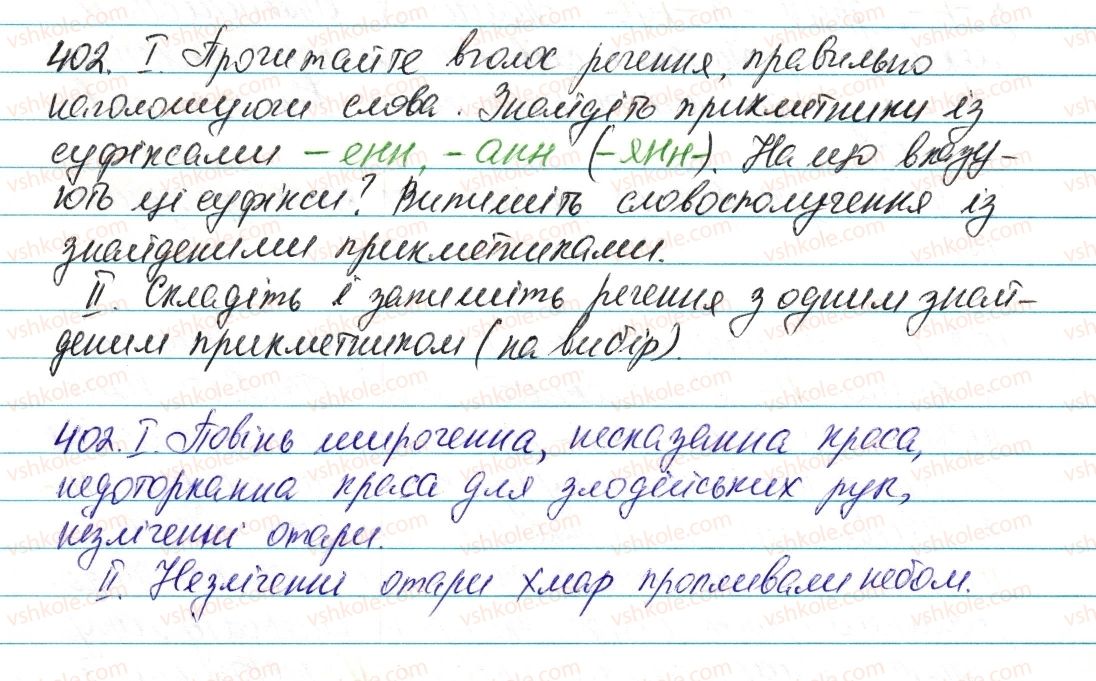 402. І. Прочитайте вголос речення, правильно
наголошуючи слова. Знайдіть прикметники із
суфіксами -енн, -анн (-янн-). На що вказу-
ють ці суфікси? Випишіть словосполучення із
знайденими прикметниками.
ІІ. Складіть і запишіть речення з одним знай-
деним прикметником (на вибір).
402. І. Повінь широченна, несказанна краса,
недоторканна краса для злодійських рук,
незліченні отари.
ІІ. Незліченні отари хмар пропливали небом.